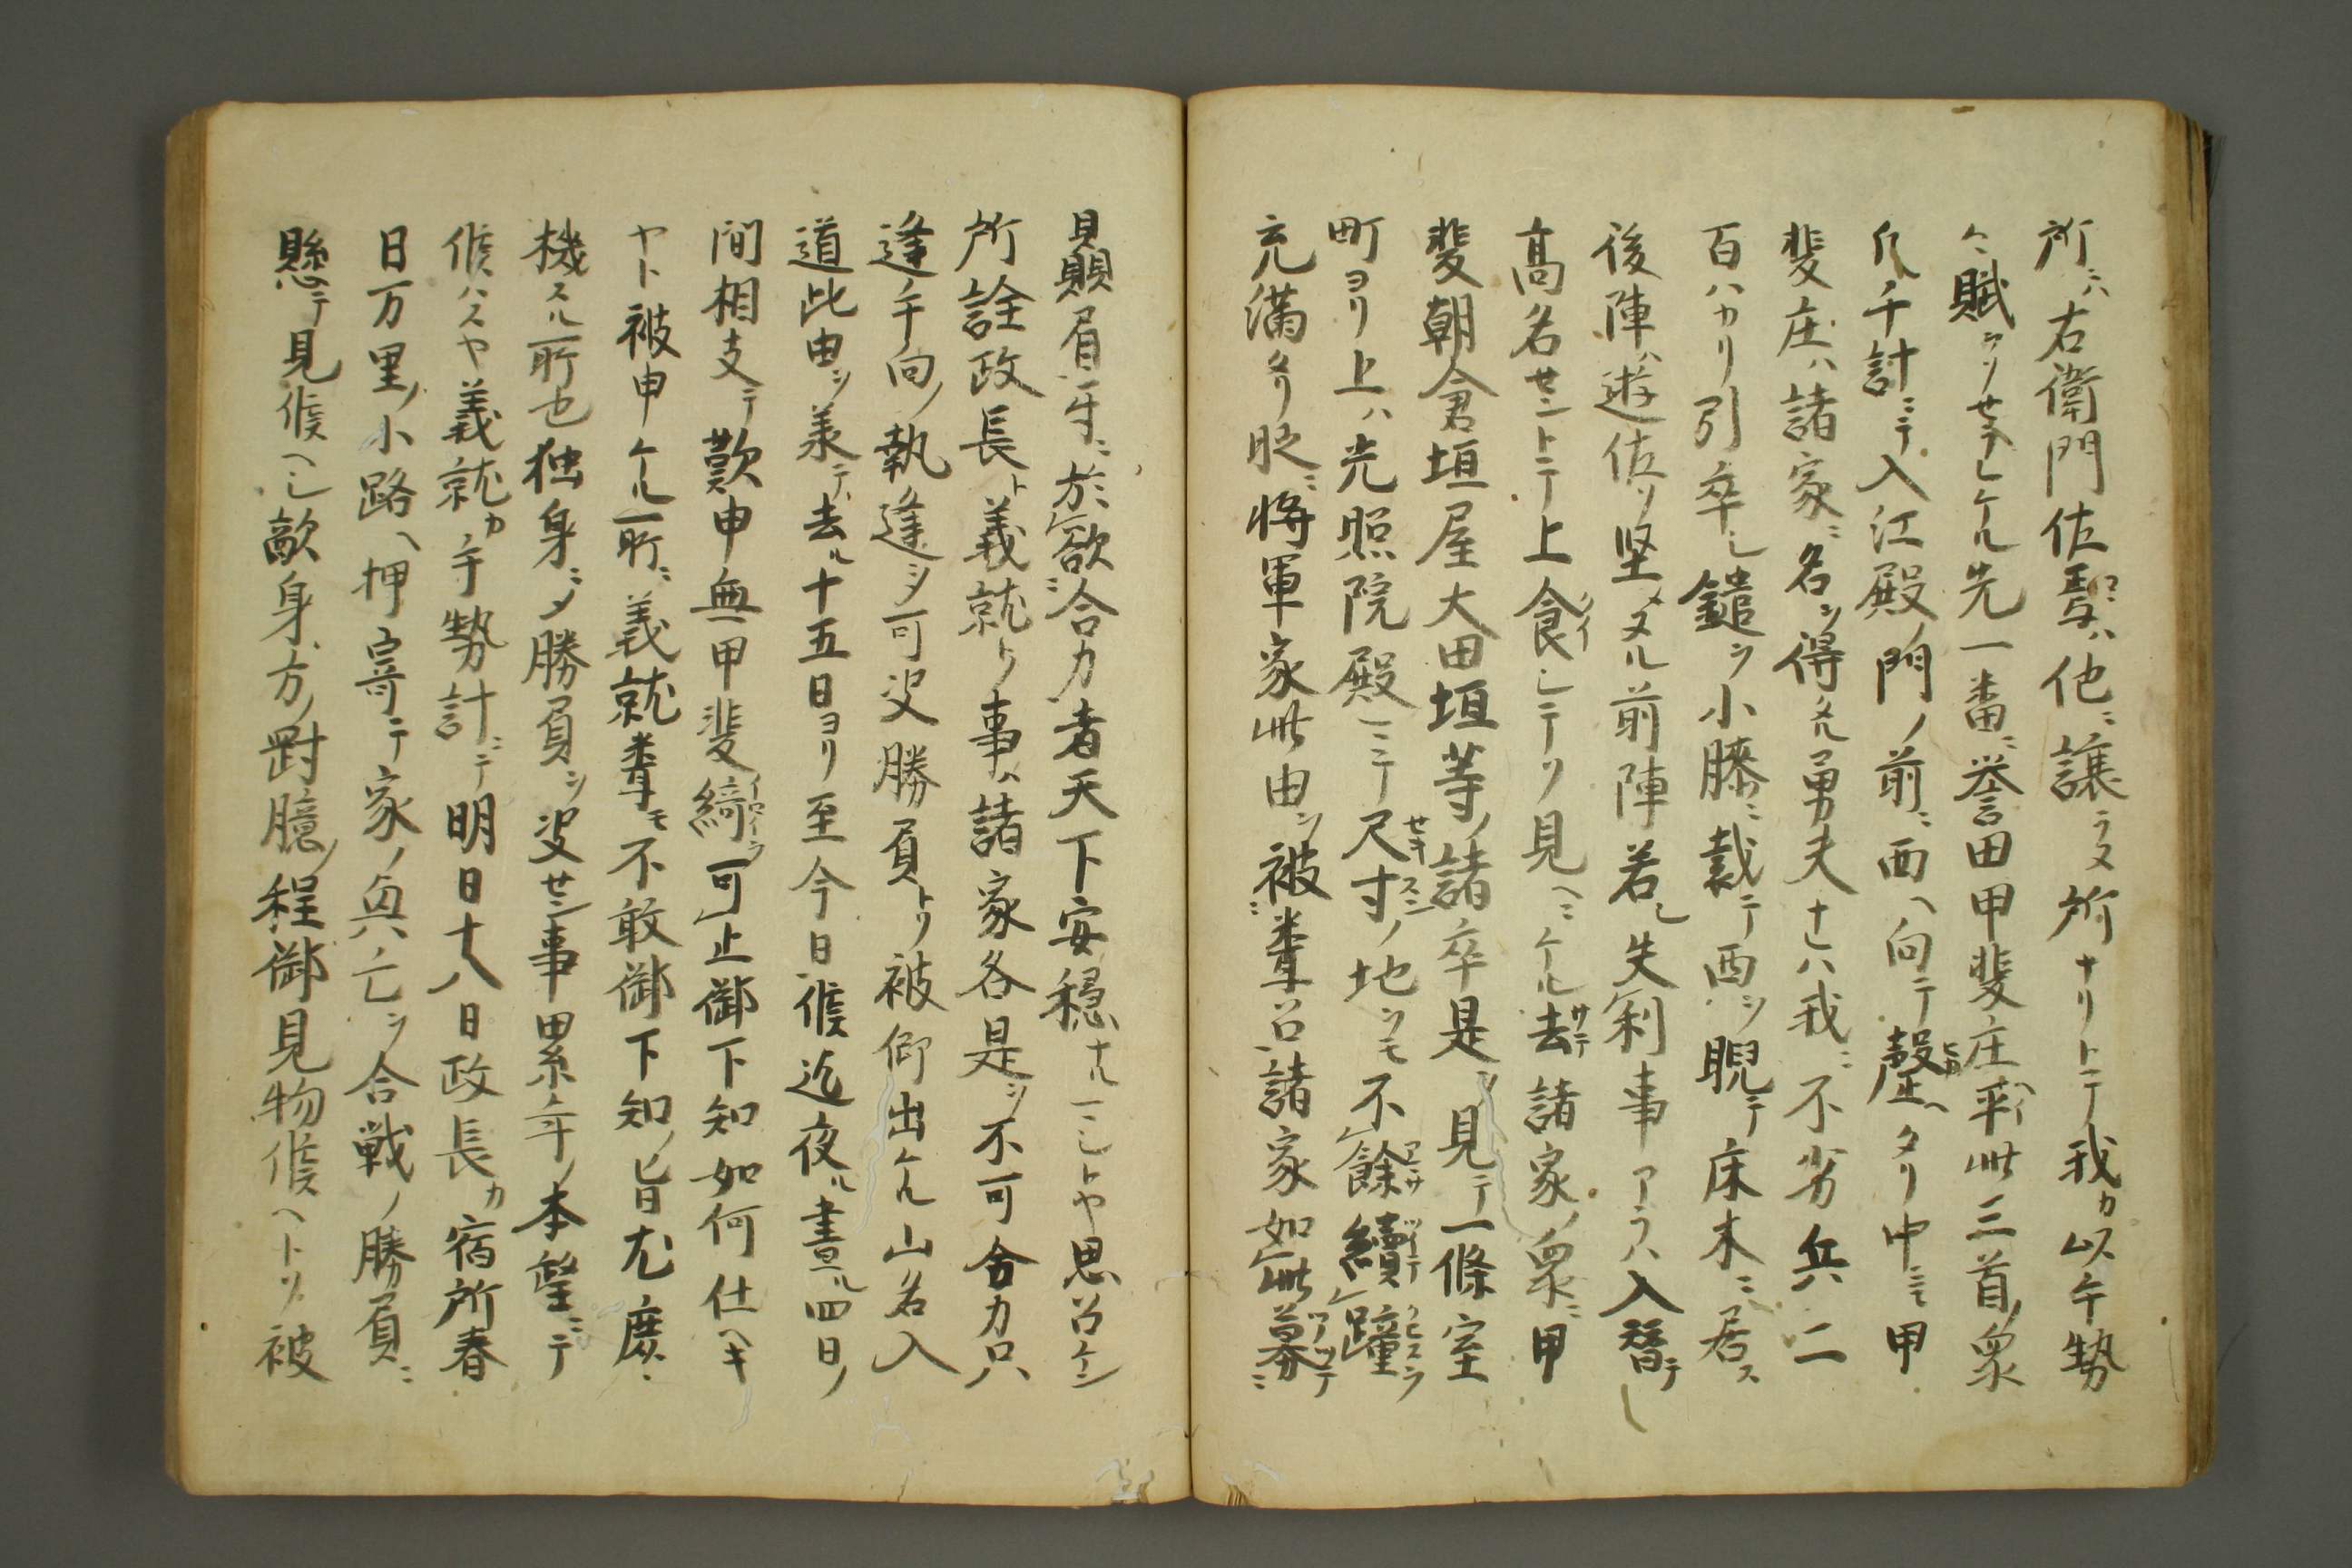 所ニハ右衛門佐コソハ他ニ譲ラヌ所ナリトテ我カ以午勢
ヘ賦ケリサテシケル先一番ニ誉田甲斐庄平此三首ノ衆
凡ノ千計ニテ入江殿ノ門ノ前ニ西ヘ向テ磬ヘタリ中ニモ甲
斐庄ハ諸家ニ名ヲ得タル勇夫ナレハ我ニ不劣兵二
百ハカリ引卒シ鑓ヲ小膝ニ裁テ西ヲ睨テ床木ニ居ス
後陣ハ遊佐ソ堅メヌル前陣若シ失利事アラハ入替テ
高名センドテ上食シテソ見ヘニケル去諸家ノ衆ニ甲
斐朝倉垣屋大田垣等ノ諸卒是ヲ見テ一條室
町ヨリ上ハ光照院殿ニテ尺寸ノ地ヲモ不餘續踵
充満タリ昵ニ将軍家此由ヲ被聾召諸家如此募ニ
眉ニ於欲合力者天下安穏ナルヘシトヤ思召ケン
所詮政長ト義就トノ事ハ諸家各是ヲ不可合力只
逢手向ノ執逢ヲ可定勝負トソ被仰出ケル山名入
道此由ヲ羕テ去ル十五日ヨリ至今日候迄夜ル晝ル四日ノ
間相支テ歎申無甲斐綺可止御下知如何仕ヘキ
ヤト被申ケル所ニ義就聾モ不敢御下知ノ旨尤庶
機スル所也独身ニメ勝負ヲ定セン事累年ノ本望ニテ
候ハスヤ義就カ手勢計ニテ明日十八日政長カ宿所春
日万里ノ小路ヘ押寄テ家ノ興亡ヲ合戦ノ勝負ニ
懸テ見候ヘシ敵身方ノ對臆ノ程御見物候ヘトソ被